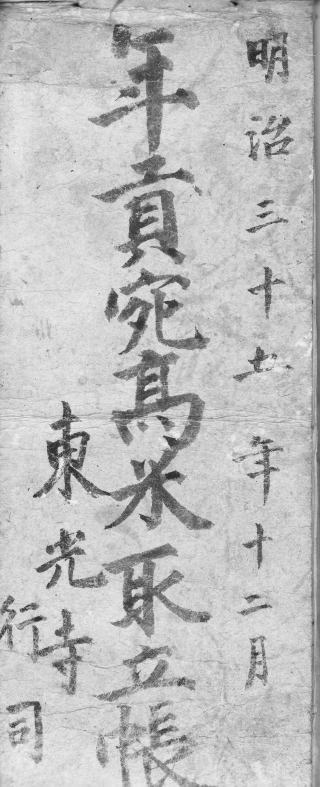 明治三十年十二月
年貢宛高米取立帳
東光寺
行司